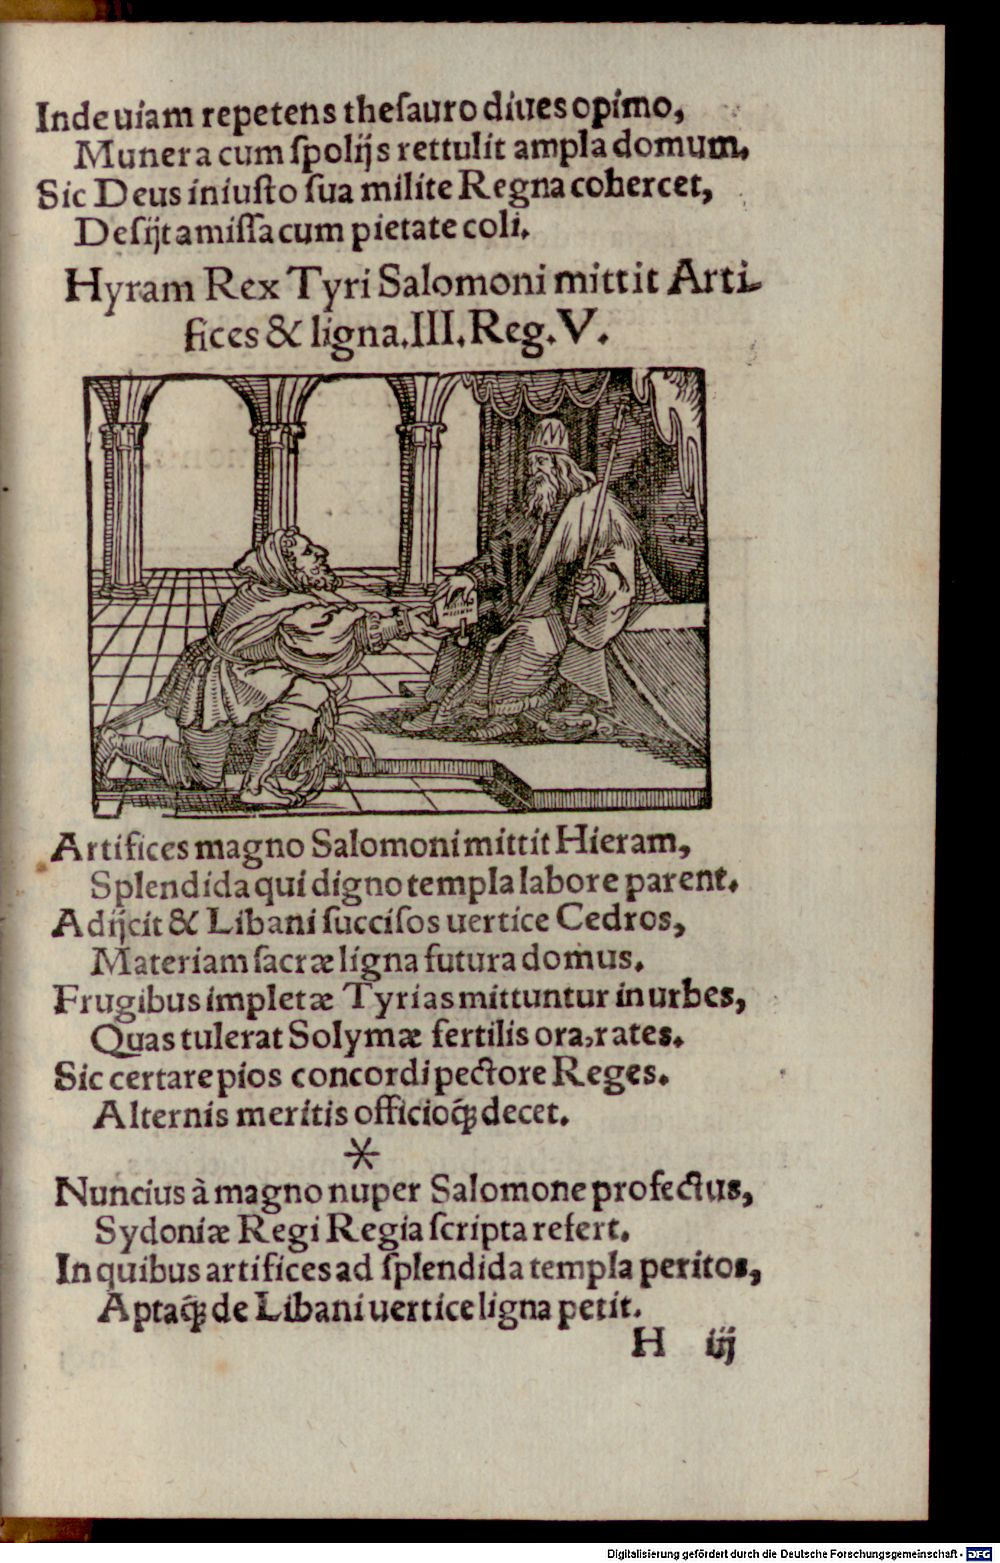 Inde uiam repetens theſauro diues opimo,
Munera cum ſpolijs rettulit ampla domum.
Sic Deus iniuſto ſua milite Regna cohercet,
Deſijt amiſſa cum pietate coli.
Hyram Rex Tyri Salomoni mittit Arti-
fices & ligna. III. Reg. V.
Artifices magno Salomoni mittit Hieram,
Splendida qui digno templa labore parent.
Adijcit & Libani ſucciſos uertice Cedros,
Materiam ſacræ ligna futura domus.
Frugibus impletæ Tyrias mittuntur in urbes,
Quas tulerat Solymæ fertilis ora, rates.
Sic certare pios concordi pectore Reges.
Alternis meritis officioq̃; decet.
*
Nuncius à magno nuper Salomone profectus,
Sydoniæ Regi Regia ſcripta refert.
In quibus artifices ad ſplendida templa peritos,
Aptaq̃; de Libani uertice ligna petit.
H iij
Digitalisierung gefördert durch die Deutsche Forschungsgemeinschaft - DFG